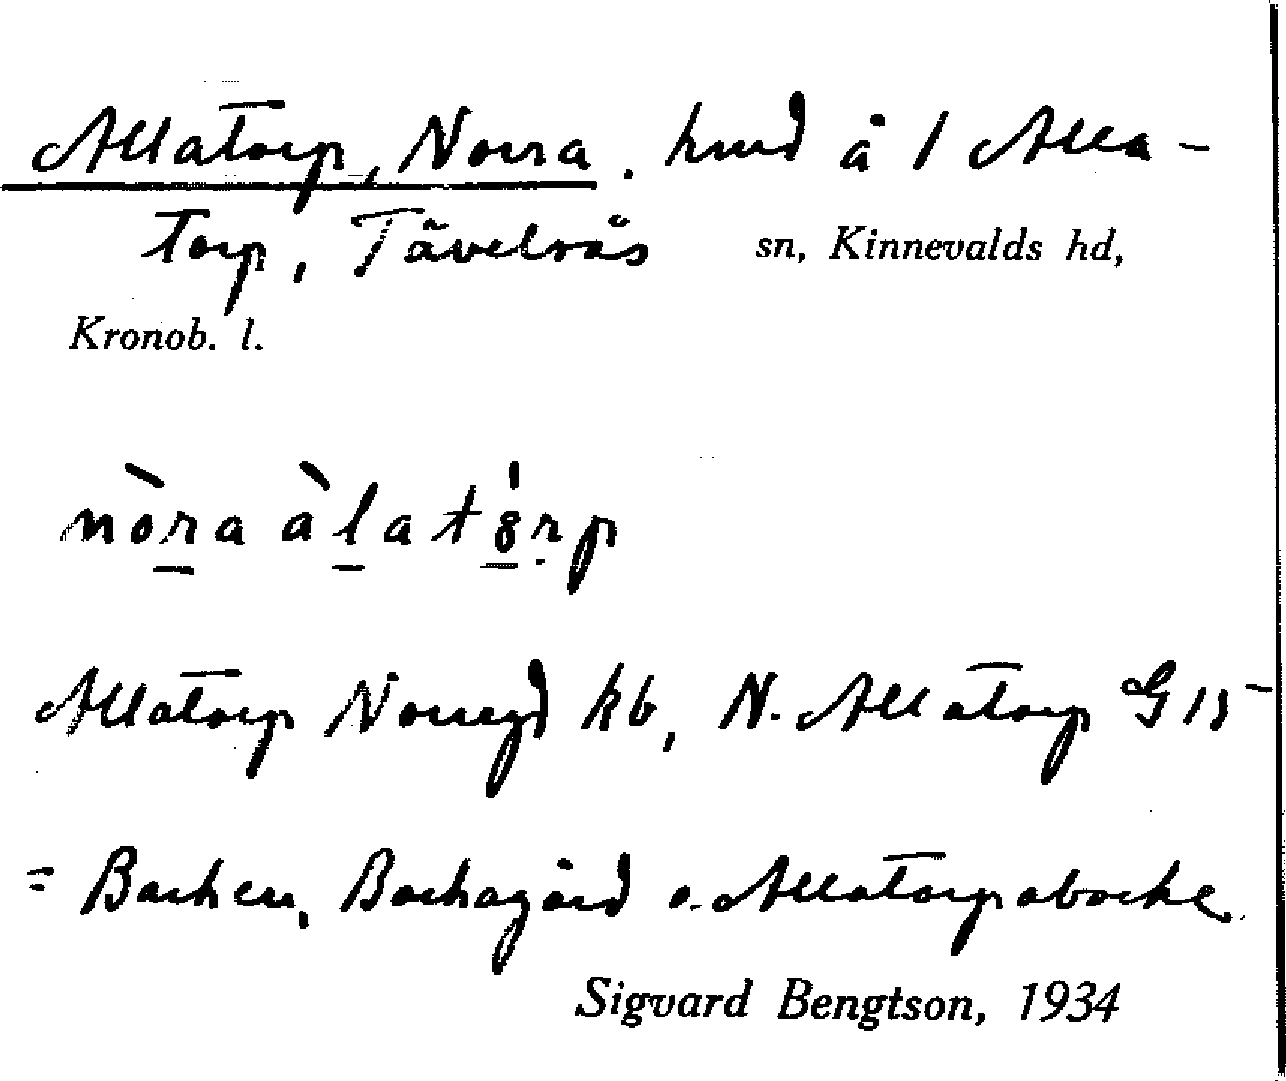 Allatorp, Norra. hmd å 1 Alla-
torp, Tävelsås sn, Kinnevalds hd,
Kronob. l.
nòra àlatȯrp
Allatorp Norregd kb, N. Allatorp G 15
= Backen, Backagård o. Allatorpabacke
Sigvard Bengtson, 1934